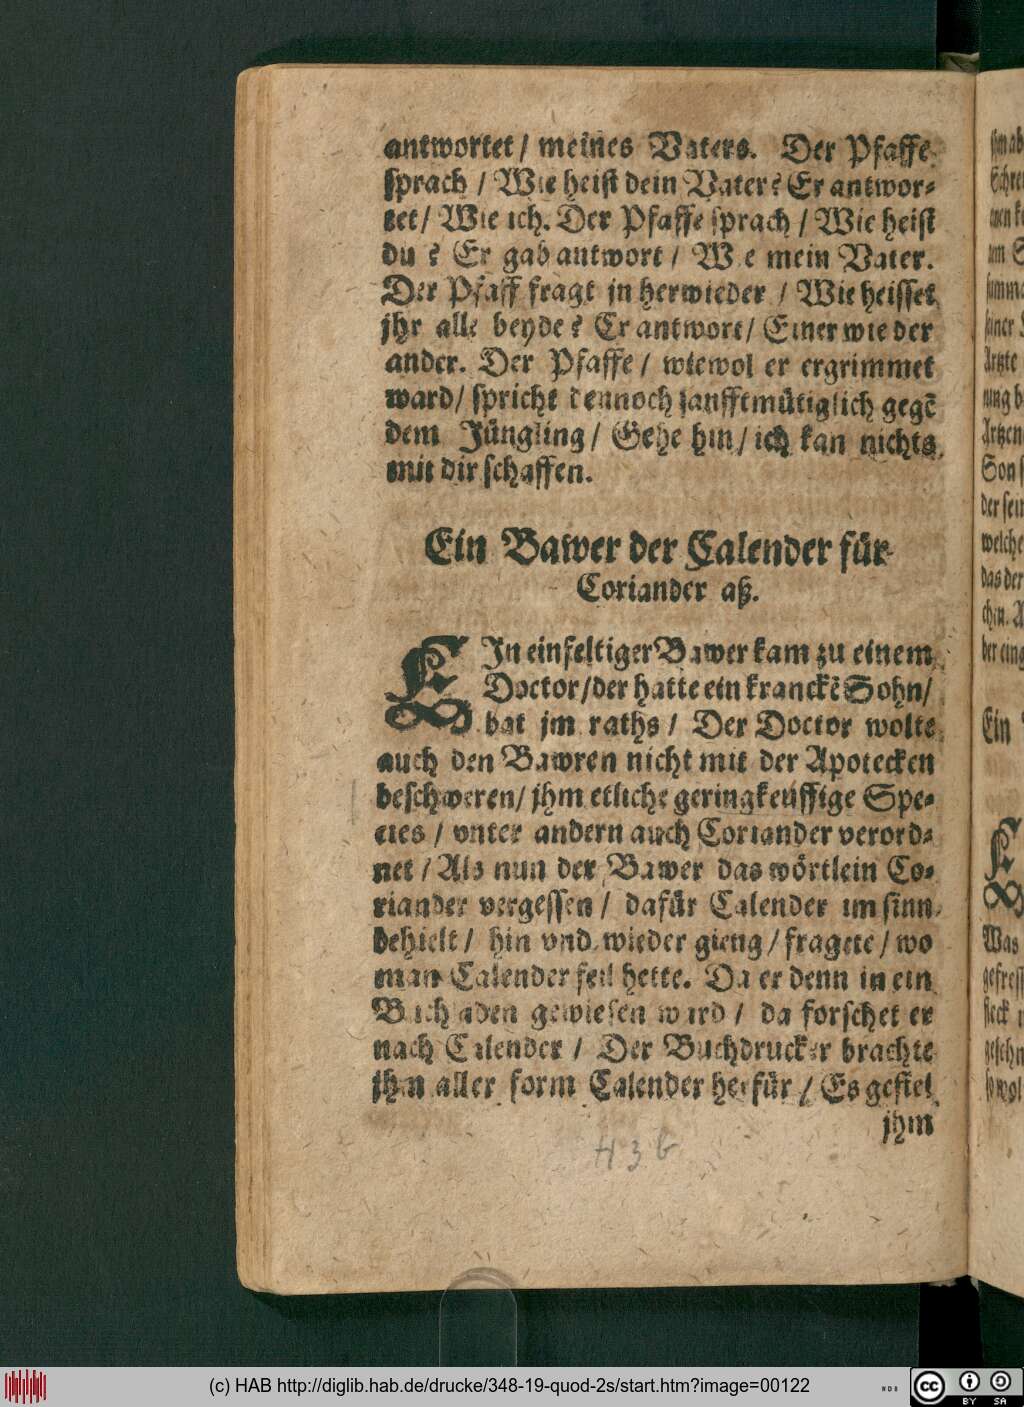 antwortet / meines Vaters. Der Pfaffe
sprach / Wie heist dein Vater? Er antwor-
tet / Wie ich. Der Pfaffe sprach / Wie heist
du? Er gab antwort / Wie mein Vater.
Der Pfaff fragt jn herwieder / Wie heisset
jhr alle beyde? Er antwort / Einer wie der
ander. Der Pfaffe / wiewol er ergrimmet
ward / spricht dennoch sanfftmütiglich gegẽ
dem Jüngling / Gehe hin / ich kan nichts
mit dir schaffen.
Ein Bawer der Calender für
Coriander aß.
EJn einfeltiger Bawer kam zu einem
Doctor / der hatte ein kranckẽ Sohn /
bat jm raths / Der Doctor wolte
auch den Bawren nicht mit der Apotecken
beschweren / jhm etliche geringkeuffige Spe-
cies / vnter andern auch Coriander verord-
net / Als nun der Bawer das wörtlein Co-
riander vergessen / dafür Calender im sinn
behielt / hin vnd wieder gieng / fragete / wo
man Calender feil hette. Da er denn in ein
Buchladen gewiesen ward / da forschet er
nach Calender / Der Buchdrucker brachte
jhm aller form Calender herfür / Es gefiel
jhm
H 3 b
(c) HAB http://diglib.hab.de/drucke/348-19-quod-2s/start.htm?image=00122
cc
BY SA